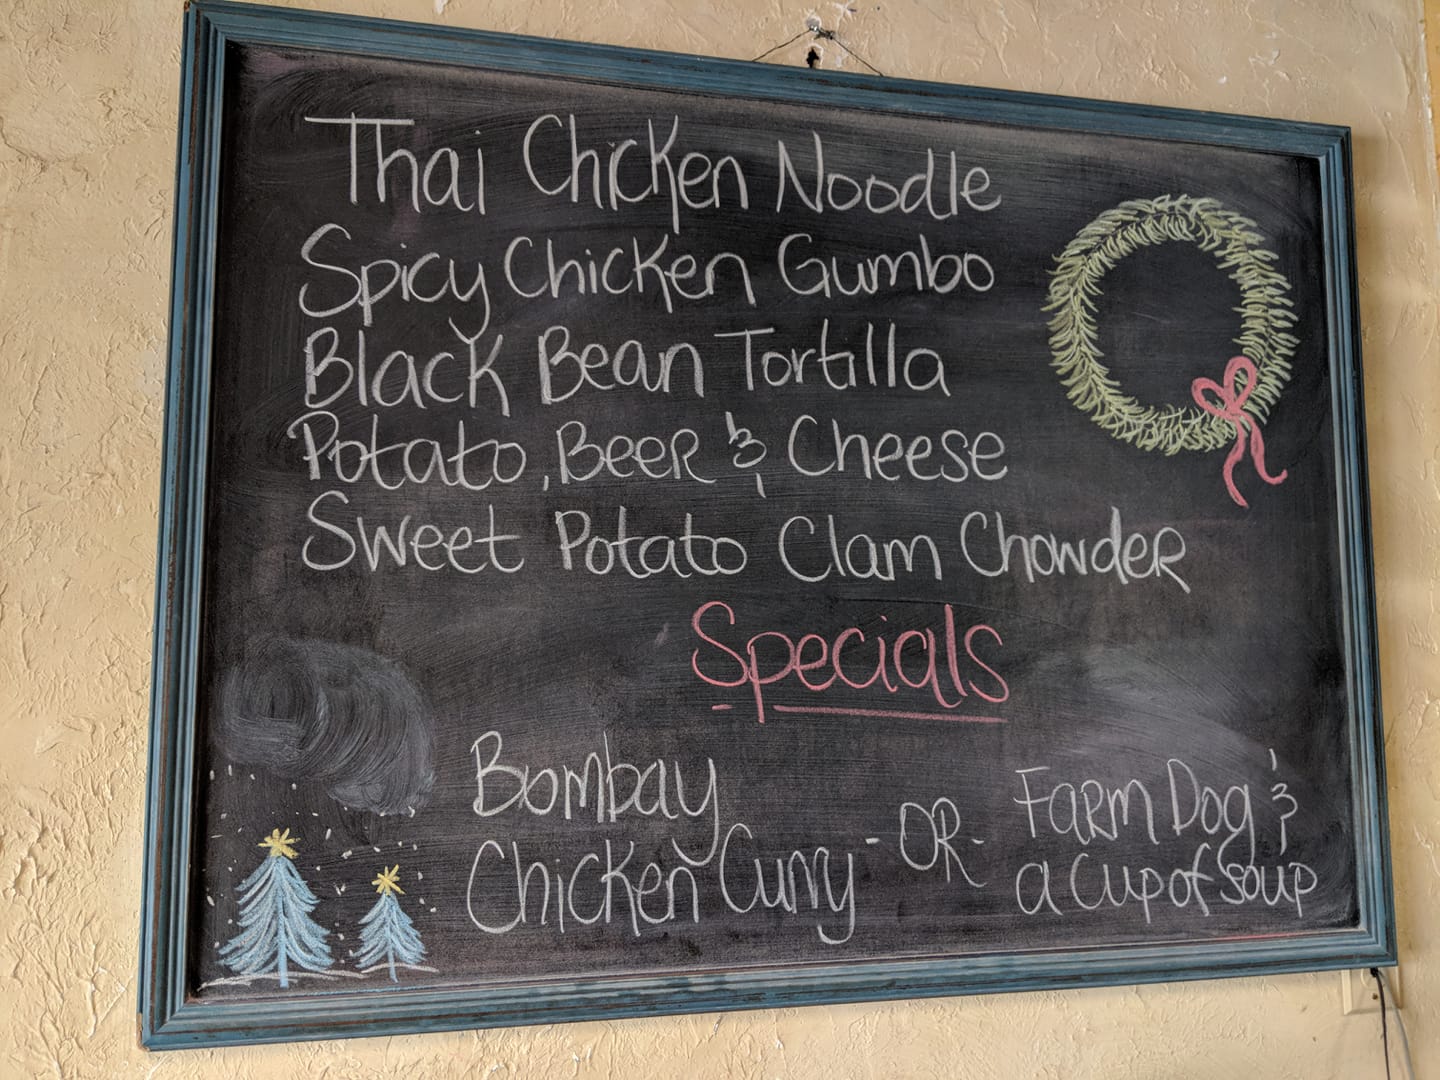 Thai Chicken Noodle
Spicy Chicken Gumbo
Black Bean Tortilla
Potato, Beer & Cheese
Sweet Potato Clam Chowder
Specials
Bombay
Chicken Curry
- OR -
Farm Dog &
a cup of soup